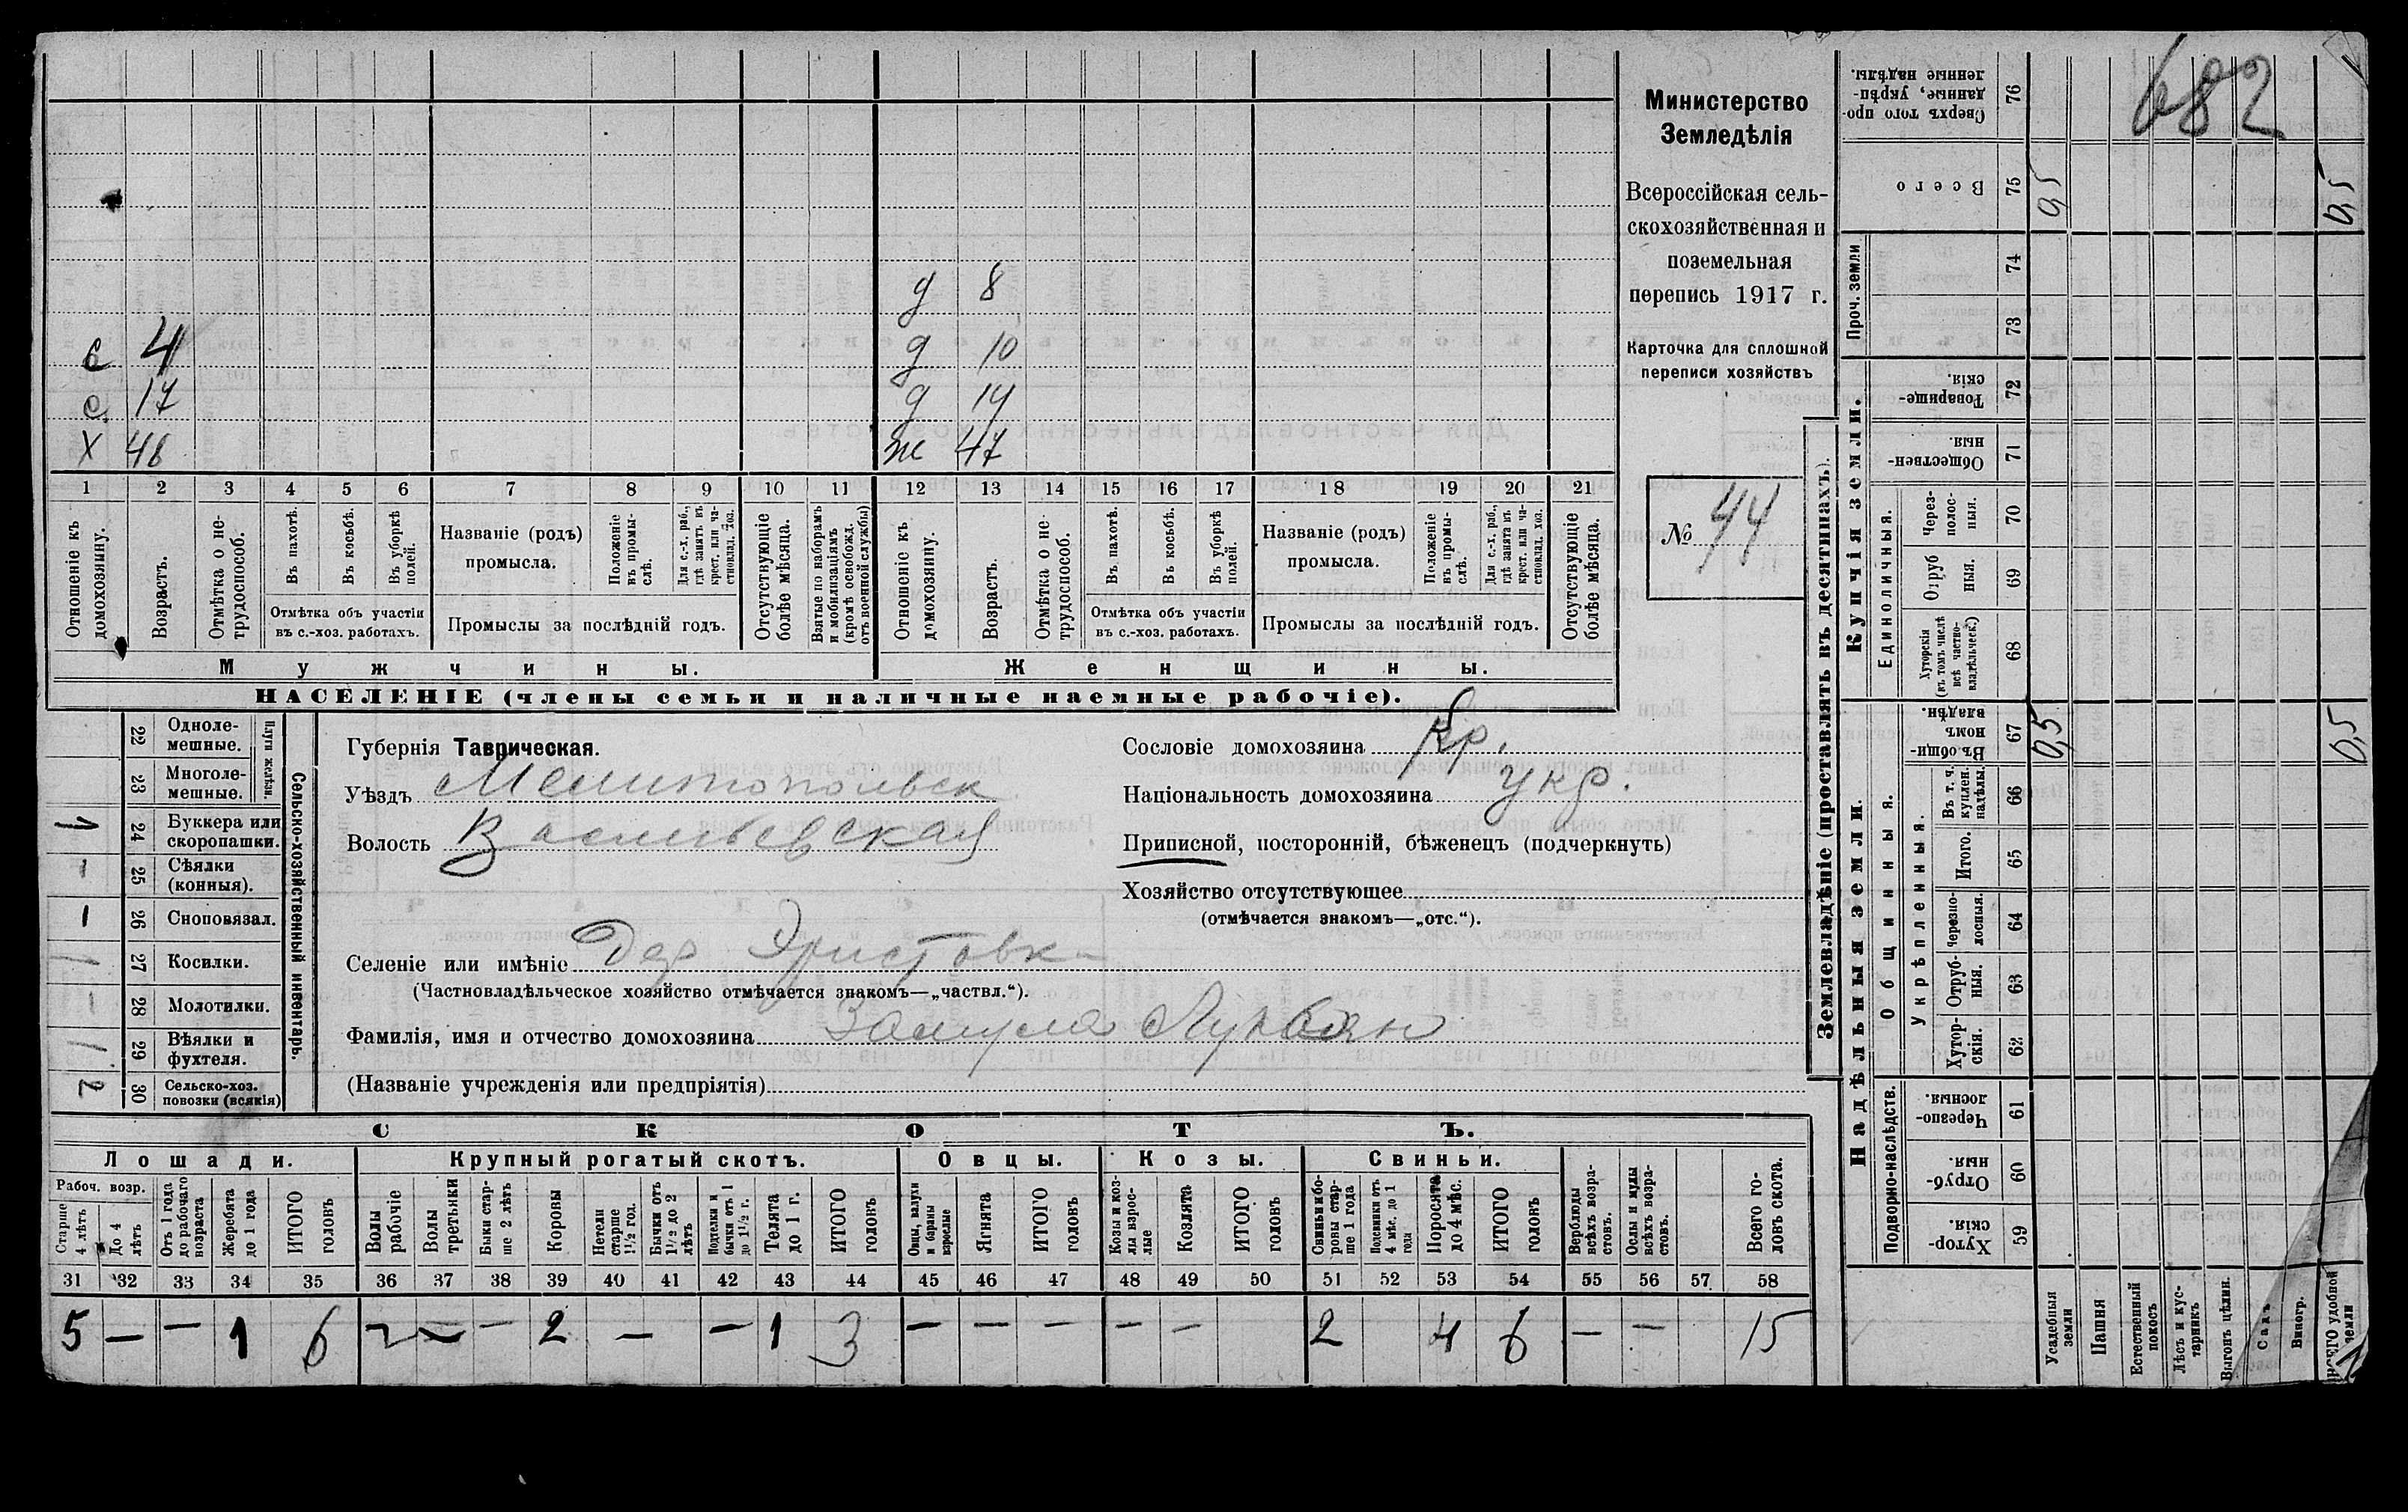 682
Министерство
Земледѣлія
Всероссійская сель-
скохозяйственная и
поземельная
перепись 1917 г.
Карточка для сплошной
переписи хозяйствъ
№ 44
д 8
с 4 д 10
с 17 д 14
Х 46 ж 47
1 2 3 4 5 6 7 8 9 10 11 12 13 14 15 16 17 18 19 20 21
Отношеніе къ домохозяину.
Возрастъ.
Отмѣтка о не-трудоспособ.
Въ пахотѣ.
Въ косьбѣ.
Въ уборкѣ полей.
Отмѣтка объ участіи
въ с.-хоз. работахъ.
Названіе (родъ)
промысла.
Положеніе въ промы-слѣ.
Для с.-х. раб., гдѣ занятъ въ крест. или ча-стновлад. хоз.
Промыслы за послѣдній годъ.
Отсутствующіе болѣе мѣсяца.
Взятые по наборамъ и мобилизаціямъ (кромѣ освобожд. отъ военной службы)
Отношеніе къ домохозяину.
Возрастъ.
Отмѣтка о не-трудоспособ.
Въ пахотѣ.
Въ косьбѣ.
Въ уборкѣ полей.
Отмѣтка объ участіи
въ с.-хоз. работахъ.
Названіе (родъ)
промысла.
Положеніе въ промы-слѣ.
Для с.-х. раб., гдѣ занята въ крест. или ча-стновлад. хоз.
Промыслы за послѣдній годъ.
Отсутствующіе болѣе мѣсяца.
Мужчины. Женщины.
НАСЕЛЕНІЕ (члены семьи и наличные наемные рабочіе).
Сельско-хозяйственный инвентарь.
Плуги желѣзн.
22 Одноле-мешные.
23 Многоле-мешные.
1 24 Буккера или скоропашки.
– 25 Сѣялки (конныя).
– 26 Сноповязал.
27 Косилки.
– 28 Молотилки.
29 Вѣялки и фухтеля.
2 30 Сельско-хоз. повозки (всякія)
Губернія Таврическая.
Уѣздъ Мелитопольск
Волость Васильевская
Сословіе домохозяина Кр.
Національность домохозяина укр.
Приписной, посторонній, бѣженецъ (подчеркнуть)
Хозяйство отсутствующее
(отмѣчается знакомъ—„отс.“).
Селеніе или имѣніе Дер Эристовк
(Частновладѣльческое хозяйство отмѣчается знакомъ—„частвл.“).
Фамилія, имя и отчество домохозяина Замула Лукьян
(Названіе учрежденія или предпріятія)
СКОТЪ.
Лошади. Крупный рогатый скотъ. Овцы. Козы. Свиньи.
Рабоч. возр.
Старше 4 лѣтъ
До 4 лѣтъ
Отъ 1 года до рабочаго возраста
Жеребята до 1 года
ИТОГО головъ
Волы рабочіе
Волы третьяки
Быки стар-ше 2 лѣтъ
Коровы
Нетели старше 1½ гол.
Бычки отъ 1½ до 2 лѣтъ
Подтелки и бычки отъ 1 до 1½ г.
Телята до 1 г.
ИТОГО головъ
Овцы, валухи и бараны взрослые
Ягнята
ИТОГО головъ
Козы и коз-лы взрос-лые
Козлята
ИТОГО головъ
Свиньи и бо-ровы стар-ше 1 года
Подсвинки отъ 4 мѣс. до 1 года
Поросята до 4 мѣс.
ИТОГО головъ
Верблюды всѣхъ возра-стовъ.
Ослы и мулы всѣхъ возра-стовъ.
Всего го-ловъ скота.
31 32 33 34 35 36 37 38 39 40 41 42 43 44 45 46 47 48 49 50 51 52 53 54 55 56 57 58
5 – – 1 6 – – – 2 – – 1 3 – – – – – 2 4 6 – – 15
Землевладѣніе (проставлять въ десятинахъ).
Сверхъ того про-данные, укрѣп-ленные надѣлы. 76
Всего 75 0,5 0,5
Проч. земли 74
73
Купчія земли.
Товарище-скія. 72
Обществен-ныя. 71
Единоличныя.
Через-полос-ныя. 70
Отруб ныя. 69
Хуторскія (въ томъ числѣ всѣ частно-владѣльческ.) 68
Надѣльныя земли.
Общинныя.
Въ общи-номъ владѣн. 67 0,5 0,5
Укрѣпленныя.
Въ т. ч. куплен. надѣлы. 66
Итого. 65
Черезпо-лосныя. 64
Отруб-ныя. 63
Хутор-скія. 62
Подворно-наслѣдств.
Черезпо-лосныя. 61
Отруб-ныя. 60
Хутор-скія. 59
Усадебныя земли
Пашня
Естественный покосъ
Лѣсъ и кус-тарникъ
Выгонъ цѣлин.
Садъ
Виногр.
ВСЕГО удобной земли